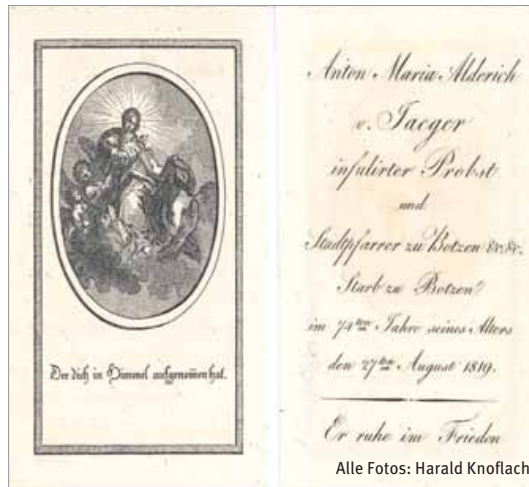 Der dich in Himmel aufgenom̄en hat.
Anton Maria Alderich
v. Jaeger
infulirter Probst
und
Stadtpfarrer zu Botzen &c. &c.
Starb zu Botzen
im 74ten Jahre seines Alters
den 27ten August 1819.
Er ruhe im Frieden
Alle Fotos: Harald Knoflach